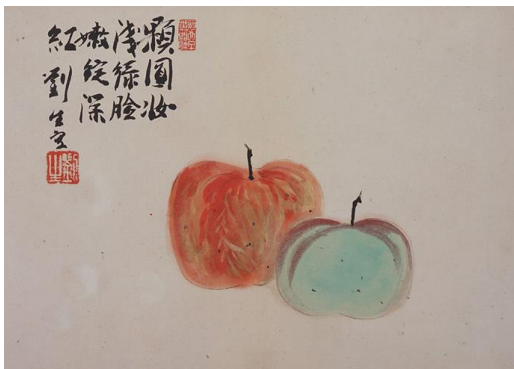 顆圓妝
淺綠臉
嫩綻深
紅 劉生